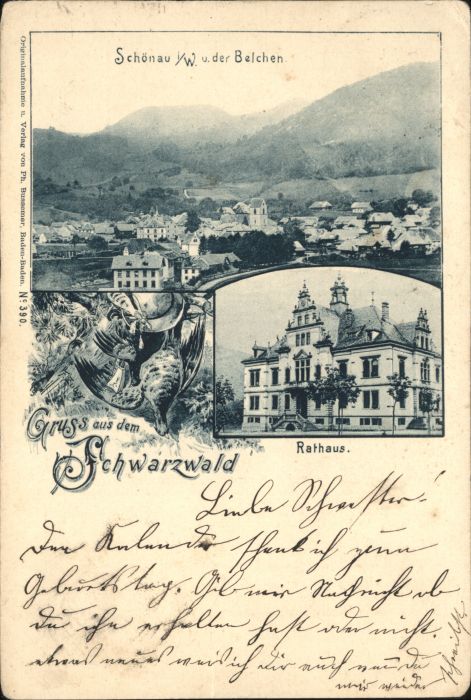 Schönau i/W. u. der Belchen
Originalaufnahme u. Verlag von Ph. Bussemer, Baden-Baden. No 390.
Gruss aus dem
Schwarzwald
Rathaus.
Liebe Schwester!
Den Kalender schenk ich zum
Geburtstag. Gib mir Nachricht ob
du ihn erhalten hast oder nicht.
etwas neues weis ich dir auch